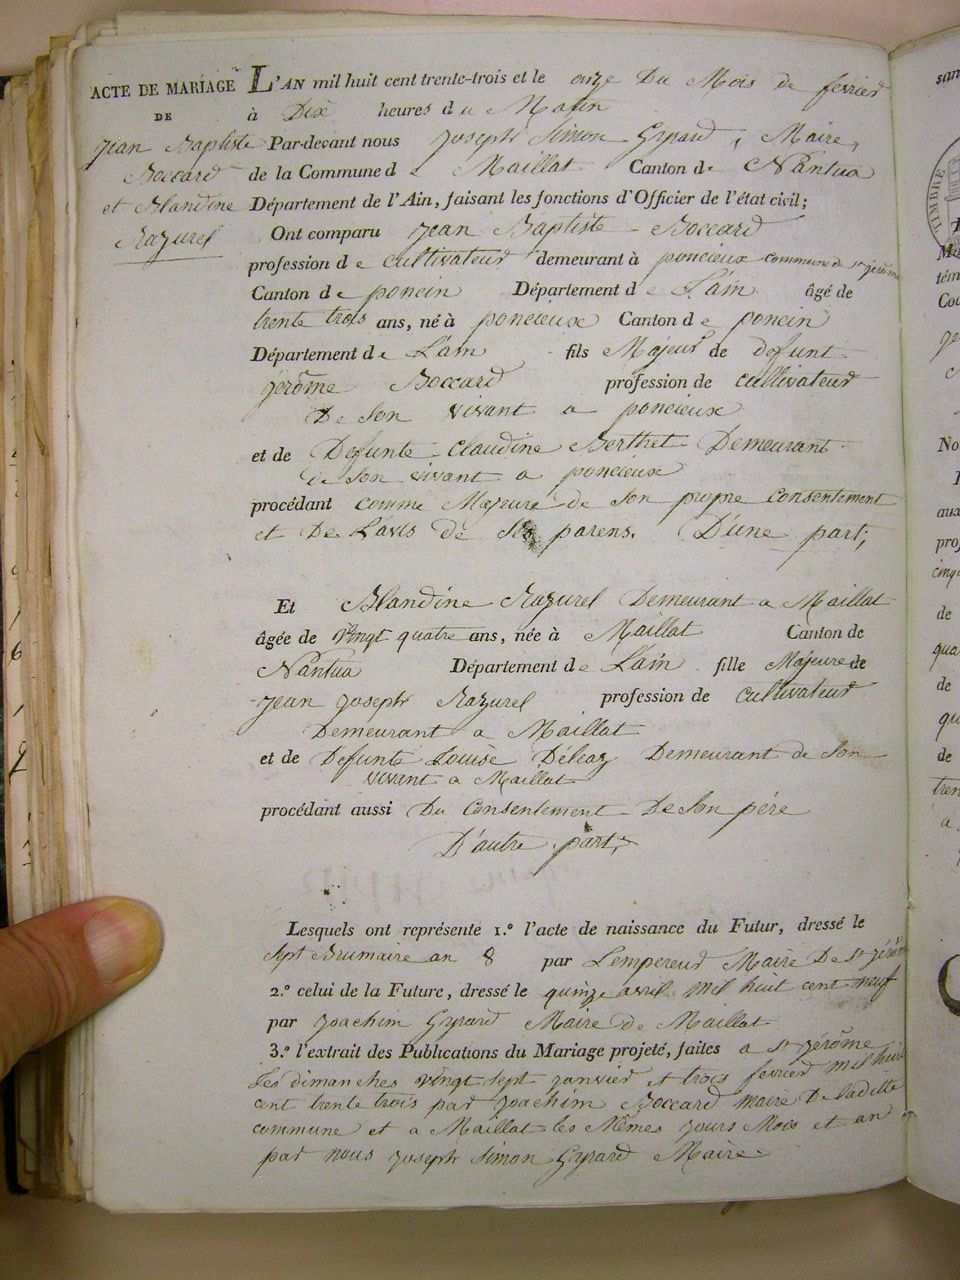 ACTE DE MARIAGE
DE
Jean Baptiste
Boccard
et Blandine
Razurel
L'AN mil huit cent trente-trois et le onze Du Mois de fevrier
à Dix heures du Matin
Par-devant nous Joseph Simon Gyrard, Maire,
de la Commune de Maillat Canton de Nantua
Département de l'Ain, faisant les fonctions d'Officier de l'état civil;
Ont comparu Jean Baptiste Boccard
profession de cultivateur demeurant à poncieux commune de st jérôme
Canton de poncin Département de L'ain âgé de
trente trois ans, né à poncieux Canton de poncin
Département de L'ain fils Majeur de defunt
jérôme Boccard profession de cultivateur
De son vivant a poncieux
et de Defunte Claudine Berthet Demeurant
de son vivant a poncieux
procédant comme Majeure de son propre consentement
et De L'avis de ses parens. D'une part;
Et Blandine Razurel Demeurant a Maillat
âgée de vingt quatre ans, née à Maillat Canton de
Nantua Département de L'ain fille Majeure de
Jean Joseph Razurel profession de cultivateur
Demeurant a Maillat
et de Defunte Louise Déléaz Demeurant de Son
vivant a Maillat
procédant aussi Du Consentement De Son pére
D'autre part,
Lesquels ont représenté 1.º l'acte de naissance du Futur, dressé le
sept Brumaire an 8 par Lempereur Maire De st jérôme
2.º celui de la Future, dressé le quinze avril mil huit cent neuf
par Joachim Gyrard Maire de Maillat
3.º l'extrait des Publications du Mariage projeté, faites a st jérôme
Les dimanches vingt sept janvier et trois fevrier mil huit
cent trente trois par Joachim Boccard maire De ladite
commune et a Maillat les Mêmes jours Mois et an
par nous Joseph Simon Gyrard Maire